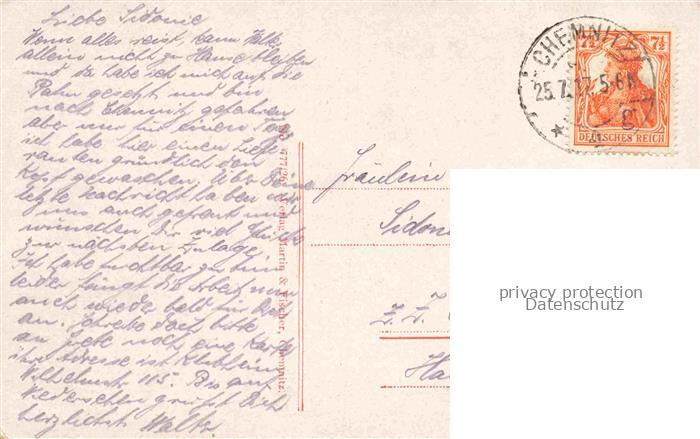 Liebe Sidonie
Wenn alles reist, kann Walter
allein nicht zu Hause bleiben
und da habe ich mich auf die
Bahn gesetzt und bin
nach Chemnitz gefahren
aber nur für einen Tag
ich habe hier einen
gründlich den
Kopf gewaschen. Über Deine
letzte Nachricht haben wir
uns auch gefreut und
wünschen Dir viel Glück
zur nächsten Zulage!
Ich habe furchtbar zu tun
leider fängt die Arbeit nun
auch wieder bald für Dich
an. Schreibe doch bitte
an noch eine Karte
ihre Adresse ist
Wilhelmstr 115. Bis auf
Wiedersehen grüsst Dich
herzlichst Walter
Verlag Martin & Fischer, Chemnitz.
CHEMNITZ
25.7.17. 5-6N
7½ 7½
DEUTSCHES REICH
Fräulein
Sidon
Z. Z.
Ha
privacy protection
Datenschutz